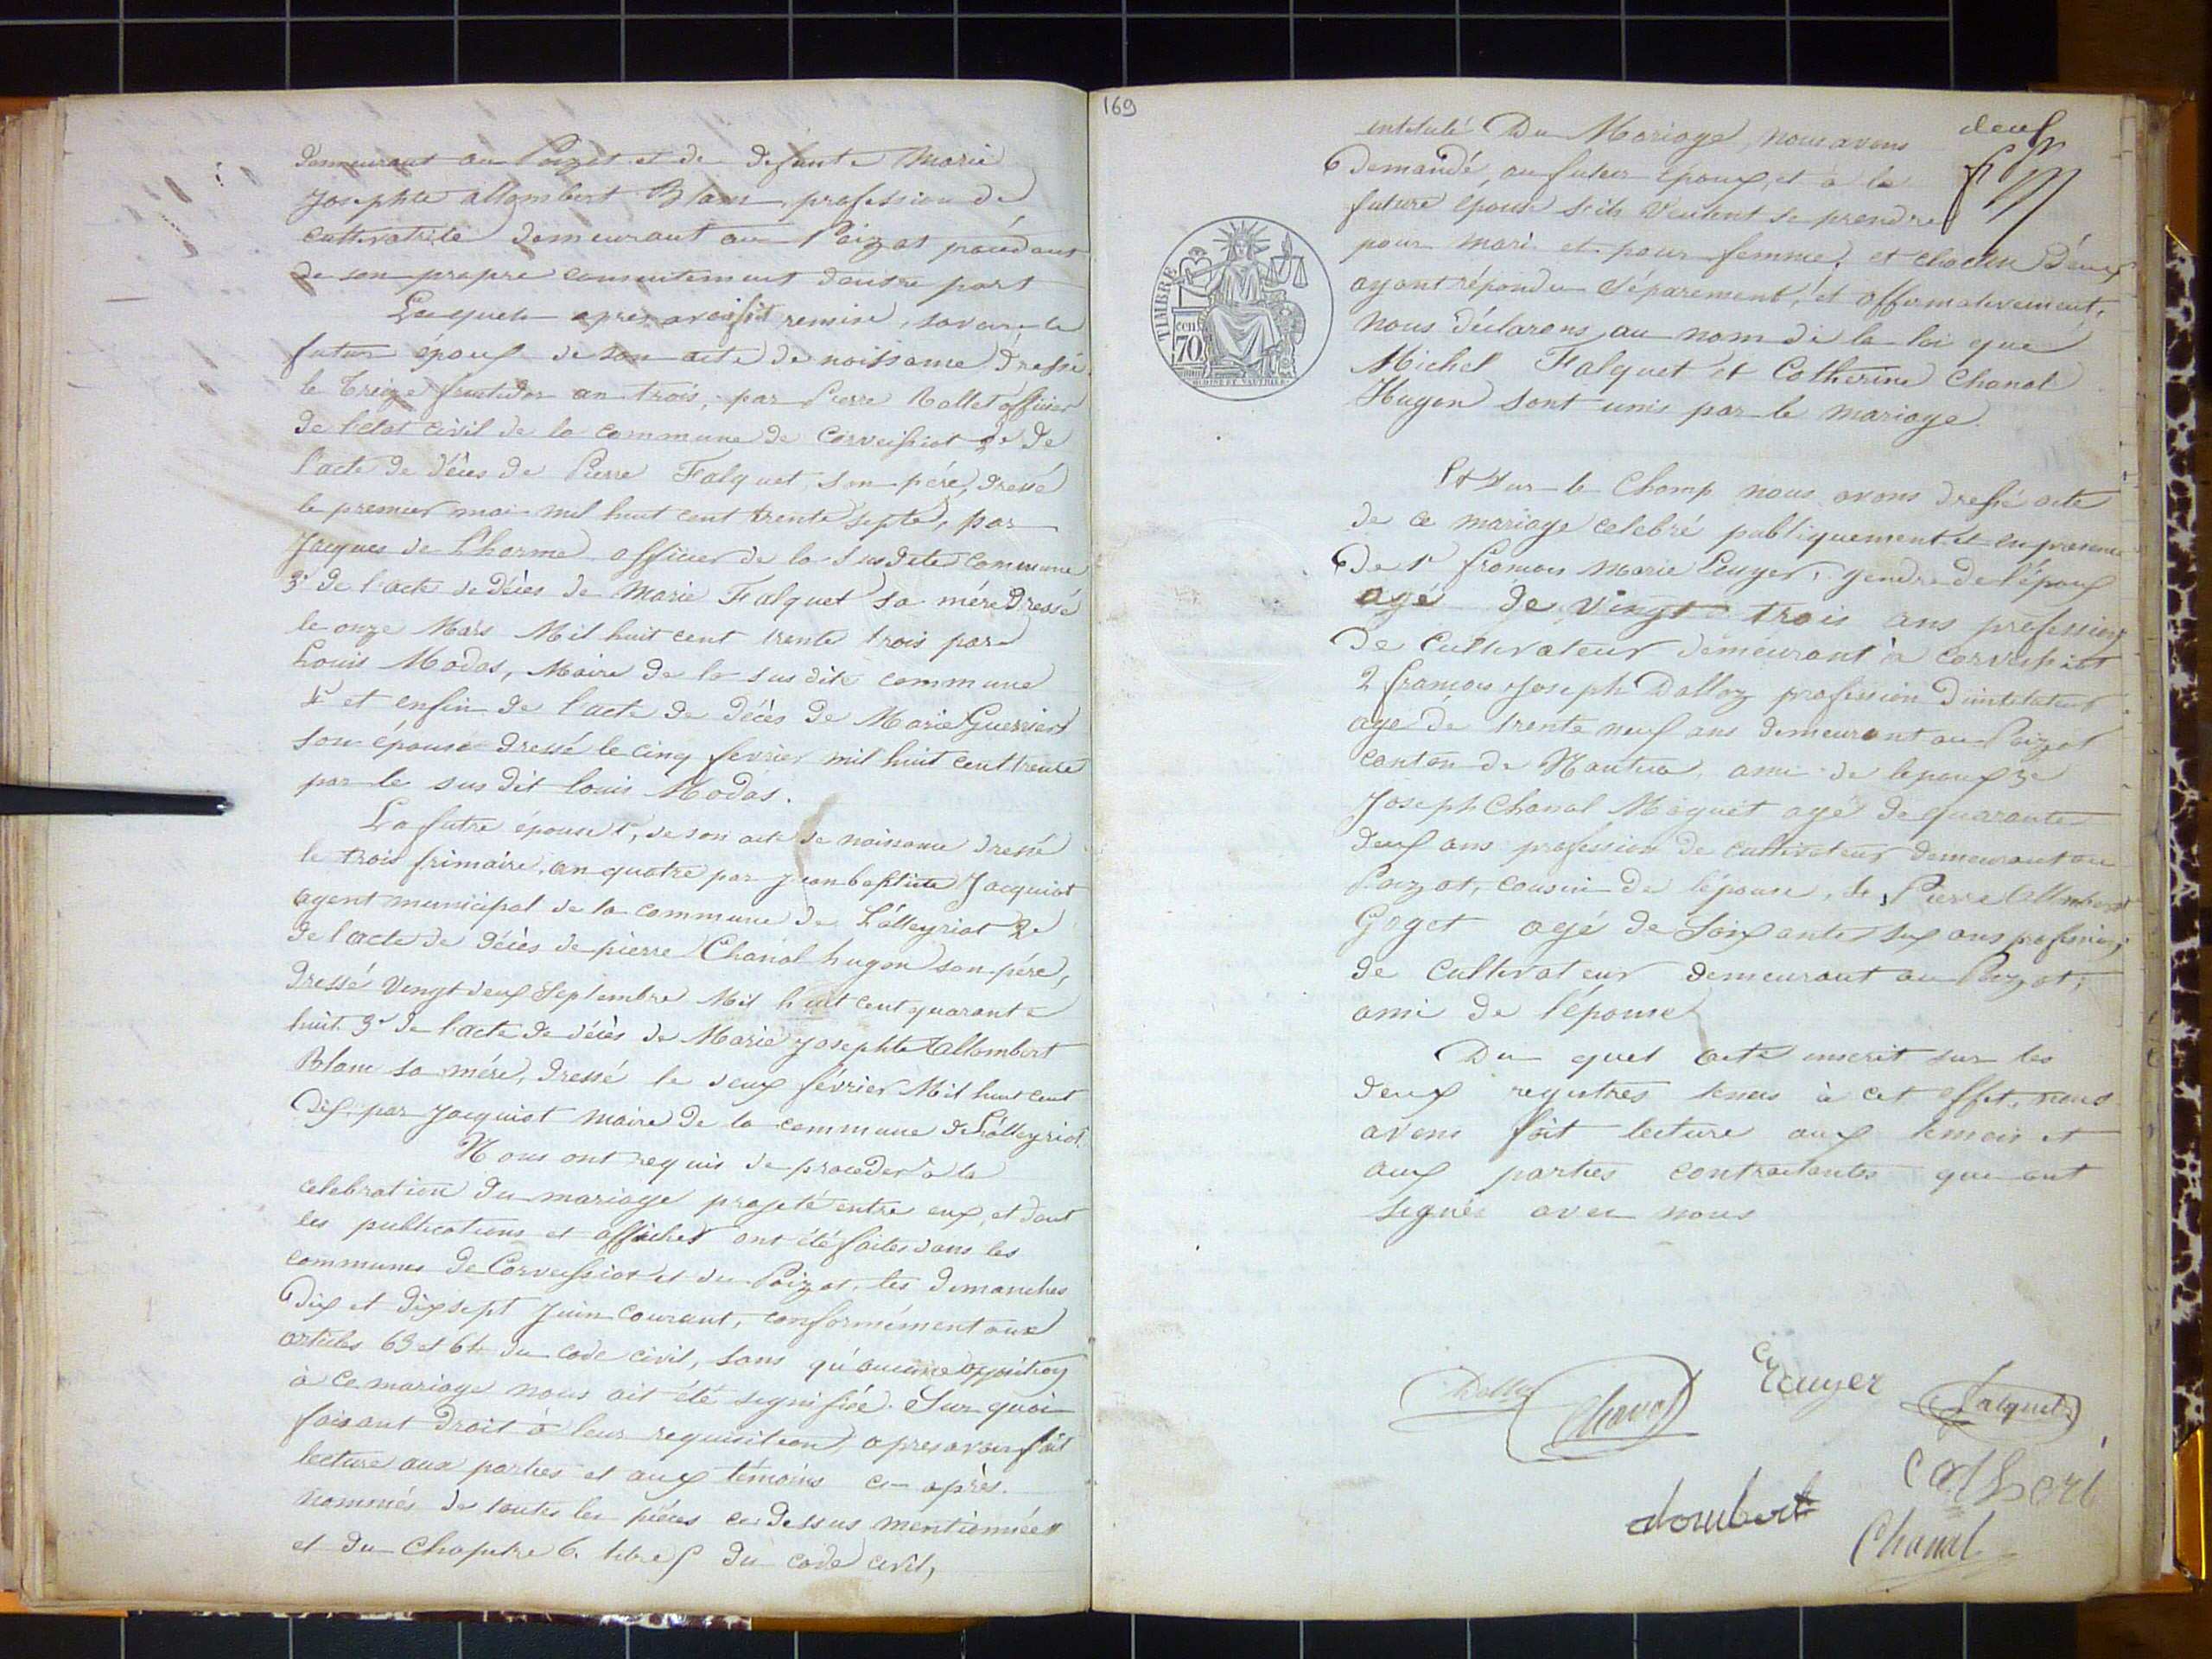 demeurant au Poizat et de defunte Marie
Josephte allombert Blanc, profession de
cultivatrice demeurant au Poizat procedant
de son propre consentement d'autre part
Lesquels apres avoir fait remise, savoir le
futur époux de son acte de naissance dressé
le treize fructidor an trois, par Pierre Rollet officier
de l'etat civil de la commune de Corveissiat 2e de
l'acte de décès de Pierre Falquet son pére, dressé
le premier mai mil huit cent trente septe, par
Jacques de Lhorme officier de la susdite commune
3e de l'acte de décès de Marie Falquet sa mére dressé
le onze Mars Mil huit cent trente trois par
Louis Modas, Maire de la susdite commune
4e et enfin de l'acte de décès de Marie Guerrier
son épouse dressé le cinq fevrier mil huit cent trente
par le susdit louis Modas.
La futre épouse 1e, de son acte de naissance dressé
le trois frimaire, an quatre par Jean baptiste Jacquiot
agent municipal de la commune de Lalleyriat 2e
de l'acte de décès de pierre Chanal hugon son pére,
dressé vingt deux Septembre Mil huit cent quarante
huit 3e de l'acte de décès de Marie Josephte allombert
Blanc sa mére, dressé le deux février Mil huit cent
dix par Jacquiot maire de la commune de Lalleyriat.
Nous ont requis de proceder à la
celebration du mariage projeté entre eux, et dont
les publications et affiches ont été faites dans les
communes de Corveissiat et du Poizat, les dimanches
dix et dix sept Juin courant, conformément aux
articles 63 et 64 du code civil, sans qu'aucune opposition
à ce mariage nous ait été signifiée. Sur quoi
faisant droit à leur requisition, apres avoir fait
lecture aux parties et aux témoins ci-après
nommés de toutes les pièces ci dessus mentionnées
et du Chapitre 6. titre 5 du code civil,
169
deux
intitulé Du Mariage, nous avons
demandé, au futur époux, et à la
future épouse s'ils veulent se prendre
pour mari et pour femme, et chacun d'eux
ayant répondu séparement, et affirmativement,
nous déclarons au nom de la loi que
Michel Falquet et Catherine Chanal
Hugon sont unis par le mariage.
TIMBRE
cen
70
Et sur le Champ nous avons dressé acte
de ce mariage celebré publiquement et en presence
de 1e francois Marie Ecuyer, gendre de l'époux
agé de vingt trois ans profession
de Cultivateur demeurant à corveissiat
2 francois Joseph Dalloz profession d'intituteur
agé de trente neuf ans demeurant au Poizat
canton de Nantua, ami de lepoux 3e
Joseph Chanal Moquet agé de quarante
deux ans profession de cultivateur demeurant au
Poizat, cousin de l'épouse, 4e, Pierre Allombert
Goget agé de soixante six ans profession
de cultivateur demeurant au Poizat,
ami de l'épouse
Du quel acte inscrit sur les
deux registres tenus à cet effet, nous
avons fait lecture aux temoin et
aux parties contractantes qui ont
signés avec nous
Dalloz
Chanal
Ecuyer
Falquet
alombert
Chanal